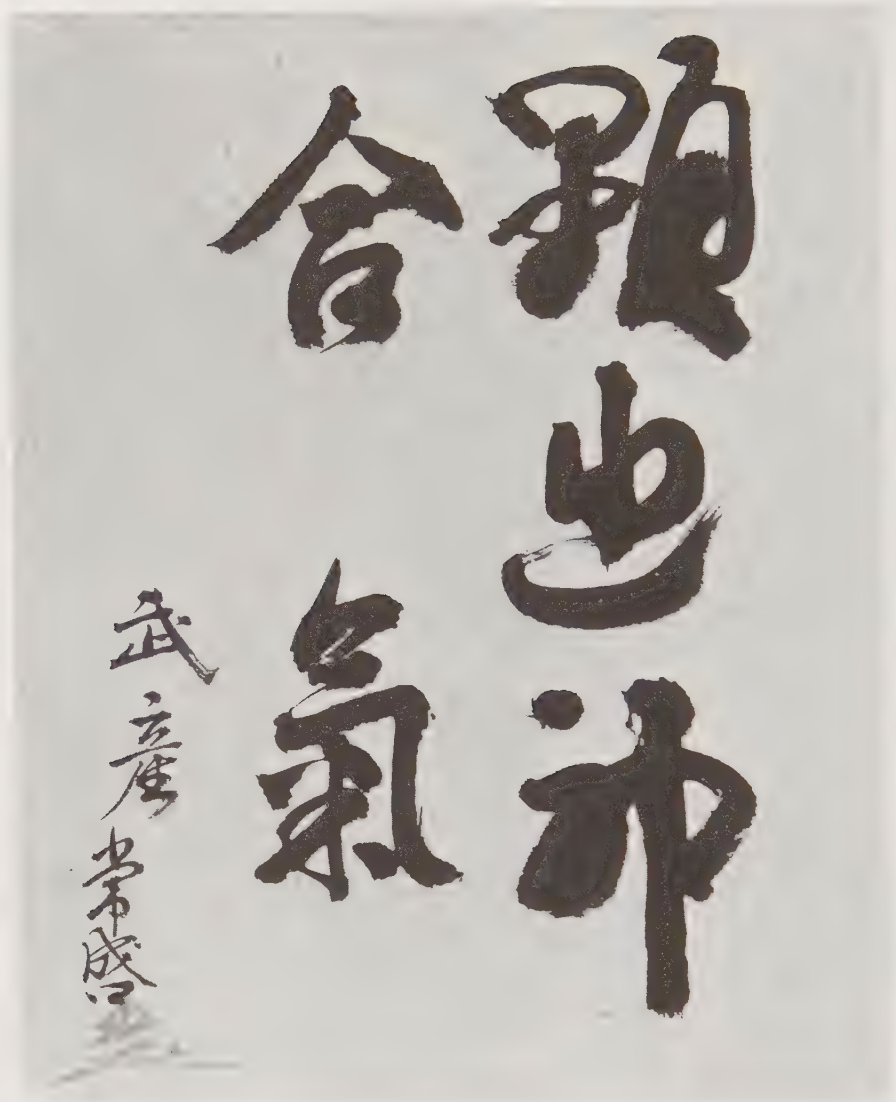 顕幽神
合氣
武産常盛